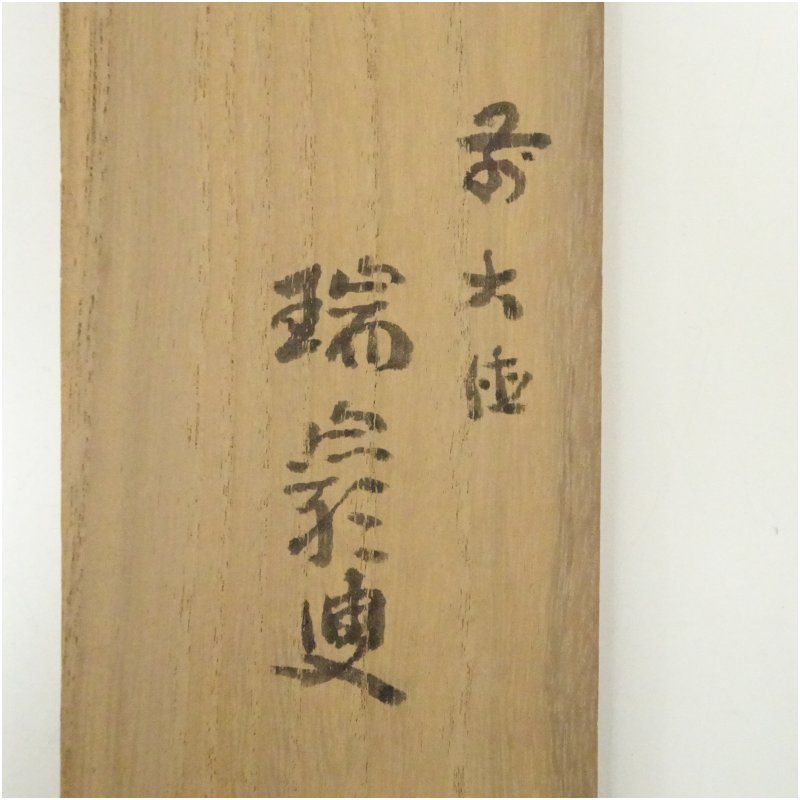 前大徳
瑞巖叟